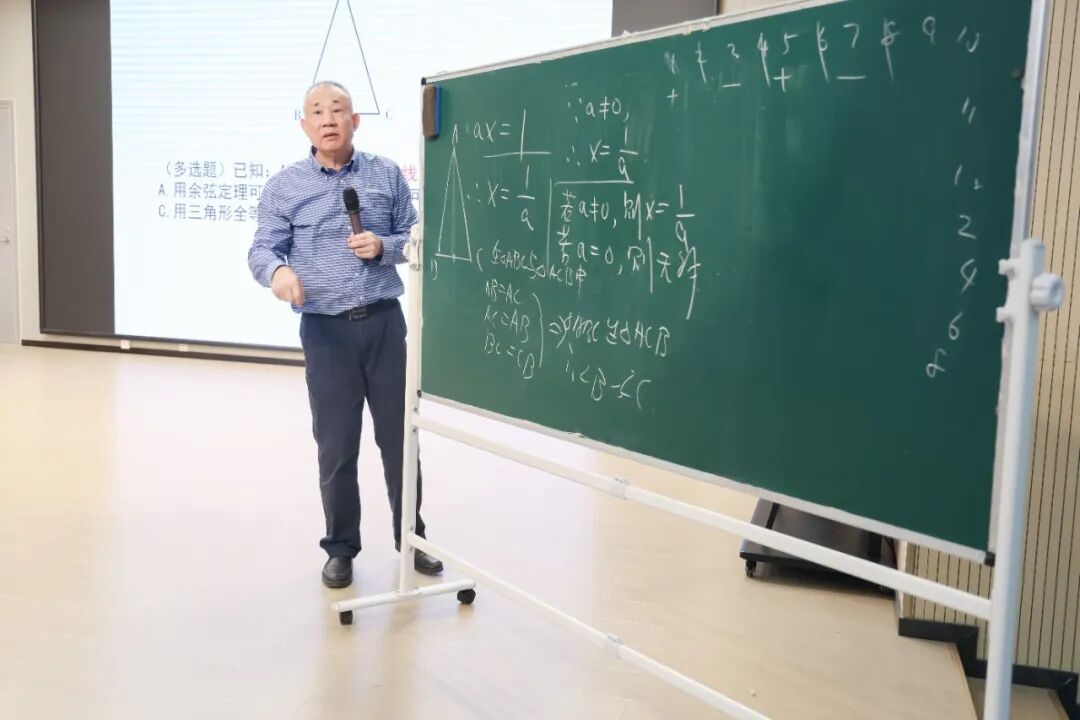 B C
(多选题)已知:
线
A.用余弦定理可
C.用三角形全等
A
B
∵ax=1
∴x=1/a
∵a≠0,
∴x=1/a
若a≠0,则x=1/a
若a=0,则无解
在△ABC与△ACB中
AB=AC
AC=AB
BC=CB
⇒△ABC≌△ACB
∴∠B=∠C
2 3 4 5 6 7 8 9 10
+ − + −
11
12
2
4
6